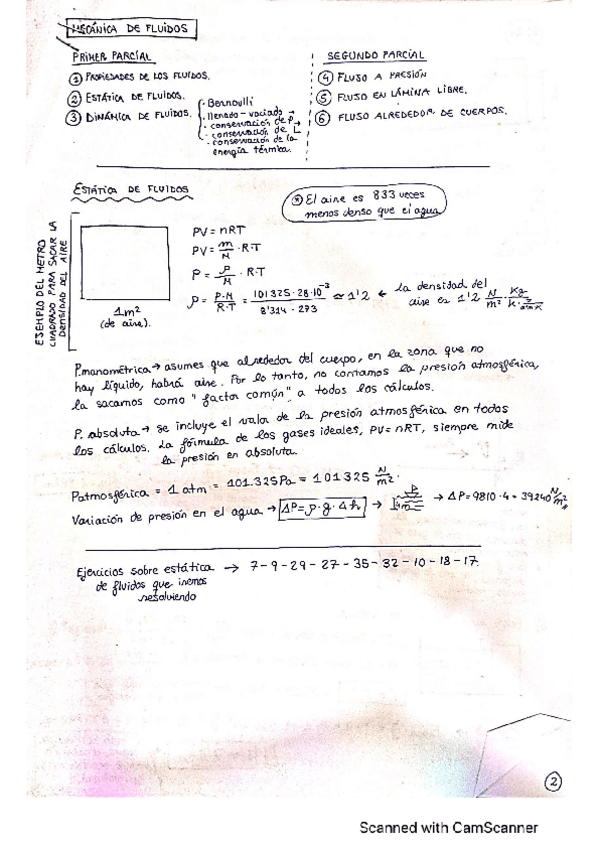 MECÁNICA DE FLUIDOS
PRIMER PARCIAL
① PROPIEDADES DE LOS FLUIDOS.
② ESTÁTICA DE FLUIDOS.
③ DINÁMICA DE FLUIDOS.
· Bernoulli
· llenado-vaciado →
· conservación de p →
· conservación de L
· conservación de la
energía térmica.
SEGUNDO PARCIAL
④ FLUJO A PRESIÓN
⑤ FLUJO EN LÁMINA LIBRE.
⑥ FLUJO ALREDEDOR DE CUERPOS.
ESTÁTICA DE FLUIDOS
El aire es 833 veces
menos denso que el agua
EJEMPLO DEL METRO
CUADRADO PARA SACAR LA
DENSIDAD DEL AIRE
1m²
(de aire).
PV = nRT
PV = m/M · R·T
P = ρ/M · R·T
ρ = P·M/R·T = 101325·28·10⁻³/8'314·273 ≃ 1'2 ← la densidad del
aire es 1'2
P.manométrica → asumes que alrededor del cuerpo, en la zona que no
hay líquido, habrá aire. Por lo tanto, no contamos la presión atmosférica,
la sacamos como "factor común" a todos los cálculos.
P. absoluta → se incluye el valor de la presión atmosférica en todos
los cálculos. La fórmula de los gases ideales, PV=nRT, siempre mide
la presión en absoluta.
Patmosférica = 1 atm = 101.325Pa = 101325 N/m².
Variación de presión en el agua → ΔP=ρ·g·Δh → 4m → ΔP=9810·4=39240 N/m²
Ejercicios sobre estática → 7-9-29-27-35-32-10-18-17.
de fluidos que iremos
resolviendo
②
Scanned with CamScanner